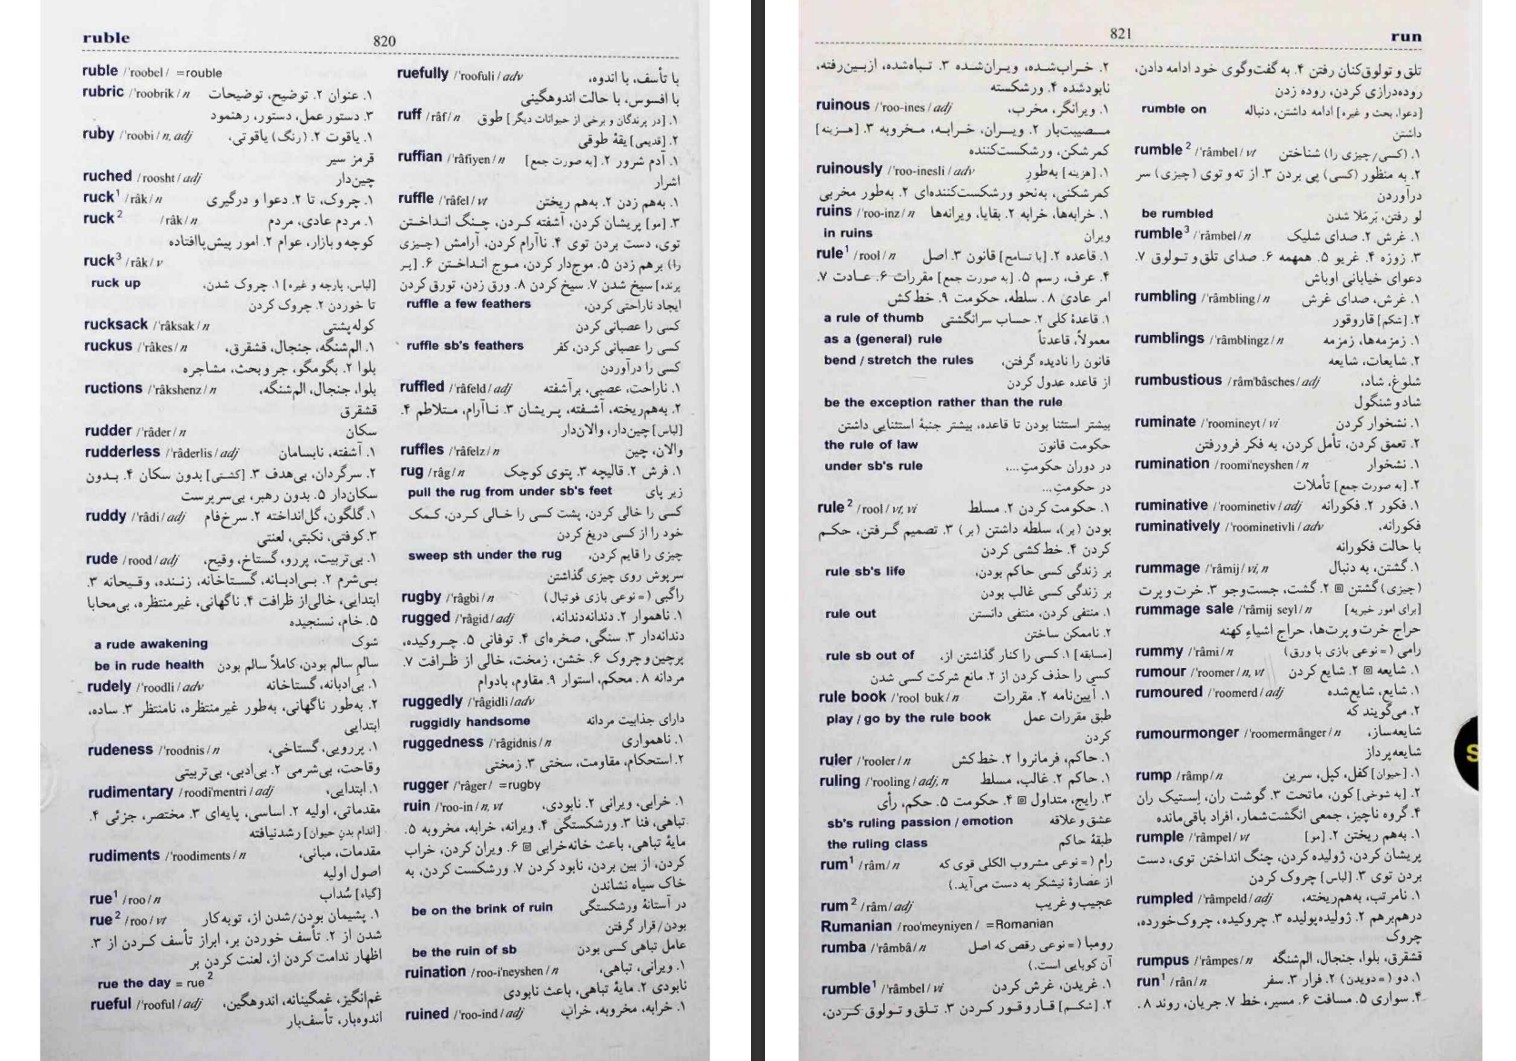 ruble
820
ruble /'roobel/ =rouble
rubric /'roobrik/ n ۱. عنوان ۲. توضیح، توضیحات
۳. دستور عمل، دستور، رهنمود
ruby /'roobi/ n, adj ۱. یاقوت ۲. (رنگ) یاقوتی،
قرمز سیر
ruched /roosht/ adj چین‌دار
ruck¹ /râk/ n ۱. چروک، تا ۲. دعوا و درگیری
ruck² /râk/ n ۱. مردم عادی، مردم
کوچه و بازار، عوام ۲. امور پیش‌پاافتاده
ruck³ /râk/ v
ruck up [لباس، پارچه و غیره] ۱. چروک شدن،
تا خوردن ۲. چروک کردن
rucksack /'râksak/ n کوله‌پشتی
ruckus /'râkes/ n ۱. الم‌شنگه، جنجال، قشقرق،
بلوا ۲. بگومگو، جر و بحث، مشاجره
ructions /'râkshenz/ n بلوا، جنجال، الم‌شنگه،
قشقرق
rudder /'râder/ n سکان
rudderless /'râderlis/ adj ۱. آشفته، نابسامان
۲. سرگردان، بی‌هدف ۳. [کشتی] بدون سکان ۴. بدون
سکان‌دار ۵. بدون رهبر، بی‌سرپرست
ruddy /'râdi/ adj ۱. گلگون، گل‌انداخته ۲. سرخ‌فام
۳. کوفتی، نکبتی، لعنتی
rude /rood/ adj ۱. بی‌تربیت، پررو، گستاخ، وقیح،
بی‌شرم ۲. بی‌ادبانه، گستاخانه، زننده، وقیحانه ۳.
ابتدایی، خالی از ظرافت ۴. ناگهانی، غیرمنتظره، بی‌محابا
۵. خام، نسنجیده
a rude awakening شوک
be in rude health سالمِ سالم بودن، کاملاً سالم بودن
rudely /'roodli/ adv ۱. بی‌ادبانه، گستاخانه
۲. به‌طور ناگهانی، به‌طور غیرمنتظره، نامنتظر ۳. ساده،
ابتدایی
rudeness /'roodnis/ n ۱. پررویی، گستاخی،
وقاحت، بی‌شرمی ۲. بی‌ادبی، بی‌تربیتی
rudimentary /roodi'mentri/ adj ۱. ابتدایی،
مقدماتی، اولیه ۲. اساسی، پایه‌ای ۳. مختصر، جزئی ۴.
[اندام بدن حیوان] رشدنیافته
rudiments /'roodiments/ n مقدمات، مبانی،
اصول اولیه
rue¹ /roo/ n [گیاه] سُداب
rue² /roo/ vt ۱. پشیمان بودن/شدن از، توبه کار
شدن از ۲. تأسف خوردن بر، ابراز تأسف کردن از ۳.
اظهار ندامت کردن از، لعنت کردن بر
rue the day = rue²
rueful /'rooful/ adj غم‌انگیز، غمگینانه، اندوهگین،
اندوه‌بار، تأسف‌بار
ruefully /'roofuli/ adv با تأسف، با اندوه،
با افسوس، با حالت اندوهگینی
ruff /râf/ n ۱. [در پرندگان و برخی از حیوانات دیگر] طوق
۲. [قدیمی] یقهٔ طوقی
ruffian /'râfiyen/ n ۱. آدم شرور ۲. [به صورت جمع]
اشرار
ruffle /'râfel/ vt ۱. به‌هم زدن ۲. به‌هم ریختن
۳. [مو] پریشان کردن، آشفته کردن، چنگ انداختن
توی، دست بردن توی ۴. ناآرام کردن، آرامش (چیزی
را) برهم زدن ۵. موج‌دار کردن، موج انداختن ۶. [پر
پرنده] سیخ شدن ۷. سیخ کردن ۸. ورق زدن، تورق کردن
ruffle a few feathers ایجاد ناراحتی کردن،
کسی را عصبانی کردن
ruffle sb's feathers کسی را عصبانی کردن، کفر
کسی را درآوردن
ruffled /'râfeld/ adj ۱. ناراحت، عصبی، برآشفته
۲. به‌هم‌ریخته، آشفته، پریشان ۳. ناآرام، متلاطم ۴.
[لباس] چین‌دار، والان‌دار
ruffles /'râfelz/ n والان، چین
rug /râg/ n ۱. فرش ۲. قالیچه ۳. پتوی کوچک
pull the rug from under sb's feet زیر پای
کسی را خالی کردن، پشت کسی را خالی کردن، کمک
خود را از کسی دریغ کردن
sweep sth under the rug چیزی را قایم کردن،
سرپوش روی چیزی گذاشتن
rugby /'râgbi/ n راگبی (= نوعی بازی فوتبال)
rugged /'râgid/ adj ۱. ناهموار ۲. دندانه‌دندانه،
دندانه‌دار ۳. سنگی، صخره‌ای ۴. توفانی ۵. چروکیده،
پرچین و چروک ۶. خشن، زمخت، خالی از ظرافت ۷.
مردانه ۸. محکم، استوار ۹. مقاوم، بادوام
ruggedly /'râgidli/ adv
ruggidly handsome دارای جذابیت مردانه
ruggedness /'râgidnis/ n ۱. ناهمواری
۲. استحکام، مقاومت، سختی ۳. زمختی
rugger /'râger/ =rugby
ruin /'roo-in/ n, vt ۱. خرابی، ویرانی ۲. نابودی،
تباهی، فنا ۳. ورشکستگی ۴. ویرانه، خرابه، مخروبه ۵.
مایهٔ تباهی، باعث خانه‌خرابی ▣ ۶. ویران کردن، خراب
کردن، از بین بردن، نابود کردن ۷. ورشکست کردن، به
خاک سیاه نشاندن
be on the brink of ruin در آستانهٔ ورشکستگی
بودن/قرار گرفتن
be the ruin of sb عامل تباهی کسی بودن
ruination /roo-i'neyshen/ n ۱. ویرانی، تباهی،
نابودی ۲. مایهٔ تباهی، باعث نابودی
ruined /'roo-ind/ adj ۱. خرابه، مخروبه، خراب
821
run
۲. خراب‌شده، ویران‌شده ۳. تباه‌شده، ازبین‌رفته،
نابودشده ۴. ورشکسته
ruinous /'roo-ines/ adj ۱. ویرانگر، مخرب،
مصیبت‌بار ۲. ویران، خرابه، مخروبه ۳. [هزینه]
کمرشکن، ورشکست‌کننده
ruinously /'roo-inesli/ adv ۱. [هزینه] به‌طورِ
کمرشکنی، به‌نحو ورشکست‌کننده‌ای ۲. به‌طور مخربی
ruins /'roo-inz/ n ۱. خرابه‌ها، خرابه ۲. بقایا، ویرانه‌ها
in ruins ویران
rule¹ /rool/ n ۱. قاعده ۲. [با تسامح] قانون ۳. اصل
۴. عرف، رسم ۵. [به صورت جمع] مقررات ۶. عادت ۷.
امر عادی ۸. سلطه، حکومت ۹. خط‌کش
a rule of thumb ۱. قاعدهٔ کلی ۲. حساب سرانگشتی
as a (general) rule معمولاً، قاعدتاً
bend / stretch the rules قانون را نادیده گرفتن،
از قاعده عدول کردن
be the exception rather than the rule
بیشتر استثنا بودن تا قاعده، بیشتر جنبهٔ استثنایی داشتن
the rule of law حکومت قانون
under sb's rule در دوران حکومتِ...،
در حکومتِ...
rule² /rool/ vt, vi ۱. حکومت کردن ۲. مسلط
بودن (بر)، سلطه داشتن (بر) ۳. تصمیم گرفتن، حکم
کردن ۴. خط‌کشی کردن
rule sb's life بر زندگی کسی حاکم بودن،
بر زندگی کسی غالب بودن
rule out ۱. منتفی کردن، منتفی دانستن
۲. ناممکن ساختن
rule sb out of [مسابقه] ۱. کسی را کنار گذاشتن از،
کسی را حذف کردن از ۲. مانع شرکت کسی شدن
rule book /'rool buk/ n ۱. آیین‌نامه ۲. مقررات
play / go by the rule book طبق مقررات عمل
کردن
ruler /'rooler/ n ۱. حاکم، فرمانروا ۲. خط‌کش
ruling /'rooling/ adj, n ۱. حاکم ۲. غالب، مسلط
۳. رایج، متداول ▣ ۴. حکومت ۵. حکم، رأی
sb's ruling passion / emotion عشق و علاقه
the ruling class طبقهٔ حاکم
rum¹ /râm/ n رام (= نوعی مشروب الکلی قوی که
از عصارهٔ نیشکر به دست می‌آید.)
rum² /râm/ adj عجیب و غریب
Rumanian /roo'meyniyen/ =Romanian
rumba /'râmbâ/ n رومبا (= نوعی رقص که اصل
آن کوبایی است.)
rumble¹ /'râmbel/ vi ۱. غریدن، غرش کردن
۲. [شکم] قار و قور کردن ۳. تلق و تولوق کردن،
تلق و تولوق‌کنان رفتن ۴. به گفت‌وگوی خود ادامه دادن،
روده‌درازی کردن، روده زدن
rumble on [دعوا، بحث و غیره] ادامه داشتن، دنباله
داشتن
rumble² /'râmbel/ vt ۱. (کسی/چیزی را) شناختن
۲. به منظور (کسی) پی بردن ۳. از ته و توی (چیزی) سر
درآوردن
be rumbled لو رفتن، بَرمَلا شدن
rumble³ /'râmbel/ n ۱. غرش ۲. صدای شلیک
۳. زوزه ۴. غریو ۵. همهمه ۶. صدای تلق و تولوق ۷.
دعوای خیابانی اوباش
rumbling /'râmbling/ n ۱. غرش، صدای غرش
۲. [شکم] قاروقور
rumblings /'râmblingz/ n ۱. زمزمه‌ها، زمزمه
۲. شایعات، شایعه
rumbustious /râm'bâsches/ adj شلوغ، شاد،
شاد و شنگول
ruminate /'roomineyt/ vi ۱. نشخوار کردن
۲. تعمق کردن، تأمل کردن، به فکر فرورفتن
rumination /roomi'neyshen/ n ۱. نشخوار
۲. [به صورت جمع] تأملات
ruminative /'roominetiv/ adj ۱. فکور ۲. فکورانه
ruminatively /'roominetivli/ adv فکورانه،
با حالت فکورانه
rummage /'râmij/ vi, n ۱. گشتن، به دنبال
(چیزی) گشتن ▣ ۲. گشت، جست‌وجو ۳. خرت و پرت
rummage sale /'râmij seyl/ n [برای امور خیریه]
حراج خرت و پرت‌ها، حراج اشیاءِ کهنه
rummy /'râmi/ n رامی (= نوعی بازی با ورق)
rumour /'roomer/ n, vt ۱. شایعه ▣ ۲. شایع کردن
rumoured /'roomerd/ adj ۱. شایع، شایع‌شده
۲. می‌گویند که
rumourmonger /'roomermânger/ n شایعه‌ساز،
شایعه‌پرداز
rump /râmp/ n ۱. [حیوان] کفل، کپل، سرین
۲. [به شوخی] کون، ماتحت ۳. گوشت ران، اِستیک ران
۴. گروه ناچیز، جمعی انگشت‌شمار، افراد باقی‌مانده
rumple /'râmpel/ vt ۱. به‌هم ریختن ۲. [مو]
پریشان کردن، ژولیده کردن، چنگ انداختن توی، دست
بردن توی ۳. [لباس] چروک کردن
rumpled /'râmpeld/ adj ۱. نامرتب، به‌هم‌ریخته،
درهم‌برهم ۲. ژولیده‌پولیده ۳. چروکیده، چروک‌خورده،
چروک
rumpus /'râmpes/ n قشقرق، بلوا، جنجال، الم‌شنگه
run¹ /rân/ n ۱. دو (= دویدن) ۲. فرار ۳. سفر
۴. سواری ۵. مسافت ۶. مسیر، خط ۷. جریان، روند ۸.
S